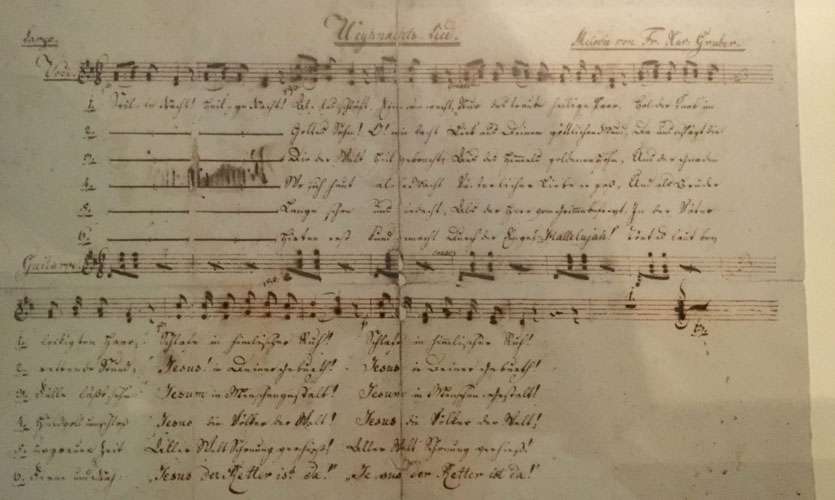 Weynachts-Lied.
Melodie von Fr. Xav. Gruber.
Voce
1. Stil-le Nacht! Heil-ge Nacht! Alles schläft. Einsam wacht, Nur das traute heilige Paar. Holder Knab im
2. Gottes Sohn! O! wie lacht Lieb aus deinem göttlichen Mund, Da uns schlägt die
3. Die der Welt Heil gebracht; Aus des Himmels goldenen Höhn, Uns der Gnaden
4. Wo sich heut alle Macht Väterlicher Liebe ergoß, Und als Bruder
5. Lange schon uns bedacht, Als der Herr vom Grimme befreyt, In der Väter
6. Hirten erst kundgemacht Durch der Engel Hallelujah! Tönt es laut bey
Guitarre
1. lockigten Haar; Schlafe in himmlischer Ruh! Schlafe in himmlischer Ruh!
2. rettende Stund; Jesus! in deiner Geburth! Jesus in deiner Geburth!
3. Fülle läßt sehn Jesum in Menschengestalt! Jesum in Menschengestalt!
4. Huldvoll umschloß Jesus die Völker der Welt! Jesus die Völker der Welt!
5. urgrauer Zeit Aller Welt Schonung verhieß! Aller Welt Schonung verhieß!
6. Ferne und Nah: "Jesus der Retter ist da!" "Jesus der Retter ist da!"